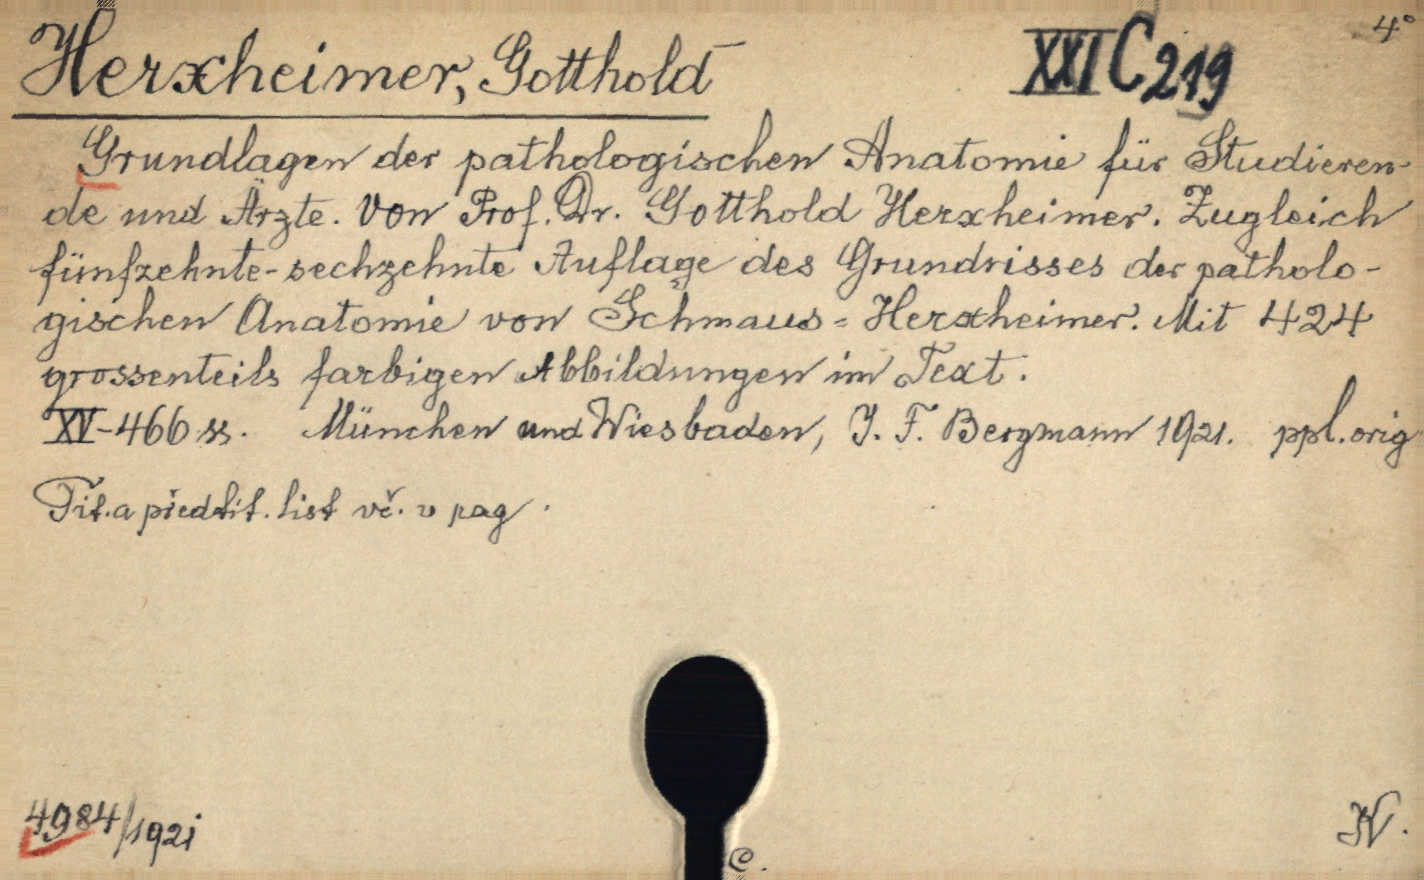 4°
Herxheimer, Gotthold
XXI C 219
Grundlagen der pathologischen Anatomie für Studieren-
de und Ärzte. Von Prof. Dr. Gotthold Herxheimer. Zugleich
fünfzehnte-sechzehnte Auflage des Grundrisses der patholo-
gischen Anatomie von Schmaus=Herxheimer. Mit 424
grossenteils farbigen Abbildungen im Text.
XV-466 ss. München und Wiesbaden, J. F. Bergmann 1921. ppl. orig
Tit. a předtit. list vč. v pag.
4984/1921
C.